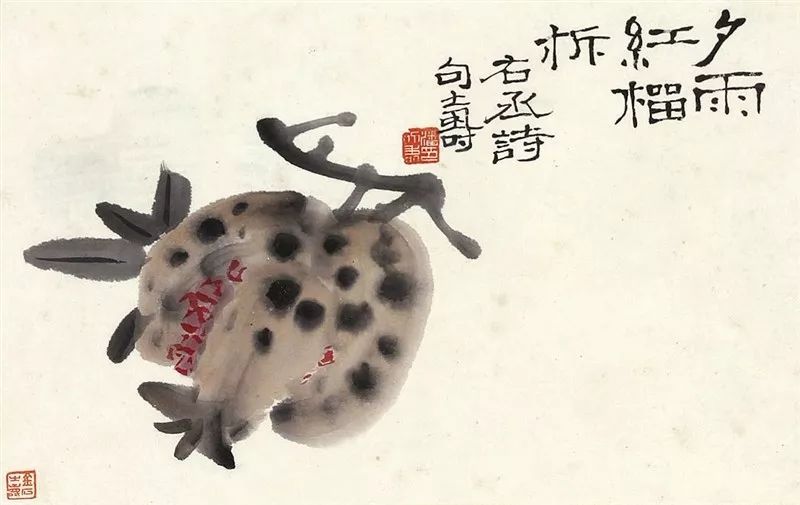 夕雨
紅榴
拆
右丞詩
句壽